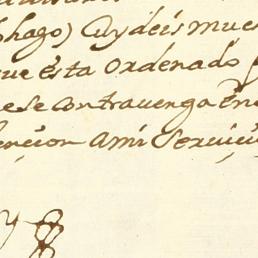 hago) Cuydeis mue
que ésta ordenado
ese contravenga En
encion ami Servici